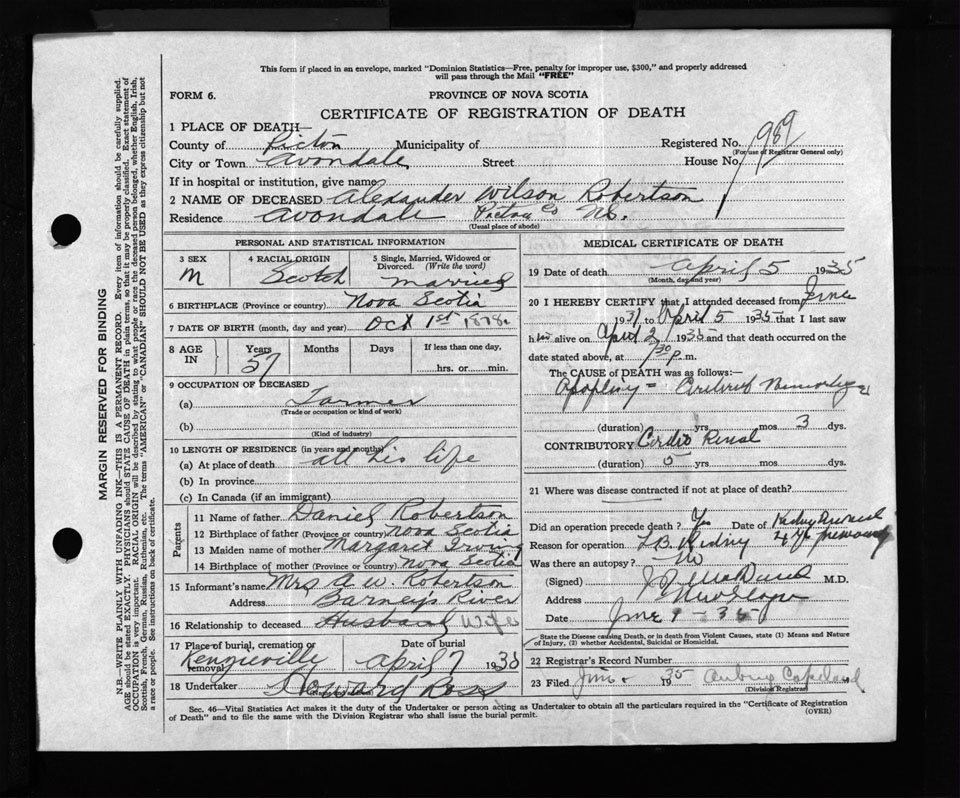 This form if placed in an envelope, marked "Dominion Statistics—Free, penalty for improper use, $300," and properly addressed
will pass through the Mail "FREE"
FORM 6.
PROVINCE OF NOVA SCOTIA
CERTIFICATE OF REGISTRATION OF DEATH
1 PLACE OF DEATH—
County of Pictou Municipality of Registered No. 989
(For use of Registrar General only)
City or Town Avondale Street House No.
If in hospital or institution, give name
2 NAME OF DECEASED Alexander Wilson Robertson
Residence Avondale Pictou Co N.S.
(Usual place of abode)
PERSONAL AND STATISTICAL INFORMATION
3 SEX
M
4 RACIAL ORIGIN
Scotch
5 Single, Married, Widowed or
Divorced. (Write the word)
married
6 BIRTHPLACE (Province or country) Nova Scotia
7 DATE OF BIRTH (month, day and year) Oct 1st 1878
8 AGE
IN
Years
57
Months
Days
If less than one day,
hrs. or min.
9 OCCUPATION OF DECEASED
(a) Farmer
(Trade or occupation or kind of work)
(b)
(Kind of industry)
10 LENGTH OF RESIDENCE (in years and months)
(a) At place of death all his life
(b) In province
(c) In Canada (if an immigrant)
Parents
11 Name of father Daniel Robertson
12 Birthplace of father (Province or country) Nova Scotia
13 Maiden name of mother Margaret Irving
14 Birthplace of mother (Province or country) Nova Scotia
15 Informant's name Mrs A W. Robertson
Address Barney's River
16 Relationship to deceased Husband Wife
17 Place of burial, cremation or
removal Kenzieville
Date of burial
April 7 1935
18 Undertaker Howard Ross
MEDICAL CERTIFICATE OF DEATH
19 Date of death April 5 1935
(Month, day and year)
20 I HEREBY CERTIFY that I attended deceased from June
1931 to April 5 1935 that I last saw
h im alive on April 2 1935 and that death occurred on the
date stated above, at 7 30 P. m.
The CAUSE of DEATH was as follows:—
Apoplexy = Cerebral Hemorrhage
(duration) yrs mos 3 dys.
CONTRIBUTORY Cardio Renal
(duration) 5 yrs mos dys.
21 Where was disease contracted if not at place of death?
Did an operation precede death? Yes Date of Kidney Removed
Reason for operation T.B. Kidney 4 yrs previously
Was there an autopsy? No
(Signed) M.D.
Address New Glasgow
Date June 9 - 35
State the Disease causing Death, or in death from Violent Causes, state (1) Means and Nature
of Injury, (2) whether Accidental, Suicidal or Homicidal.
22 Registrar's Record Number
23 Filed June 1935 Aubrey Copeland
(Division Registrar)
Sec. 46—Vital Statistics Act makes it the duty of the Undertaker or person acting as Undertaker to obtain all the particulars required in the "Certificate of Registration
of Death" and to file the same with the Division Registrar who shall issue the burial permit.
(OVER)
MARGIN RESERVED FOR BINDING
N.B.—WRITE PLAINLY WITH UNFADING INK—THIS IS A PERMANENT RECORD. Every item of information should be carefully supplied.
AGE should be stated EXACTLY. PHYSICIANS should STATE CAUSE OF DEATH in plain terms, so that it may be properly classified. Exact statement of
OCCUPATION is very important. RACIAL ORIGIN will be described by stating to what people or race the deceased person belonged, whether English, Irish,
Scottish, French, German, Russian, Ruthenian, etc. The terms "AMERICAN" or "CANADIAN" SHOULD NOT BE USED as they express citizenship but not
a race or people. See instructions on back of certificate.